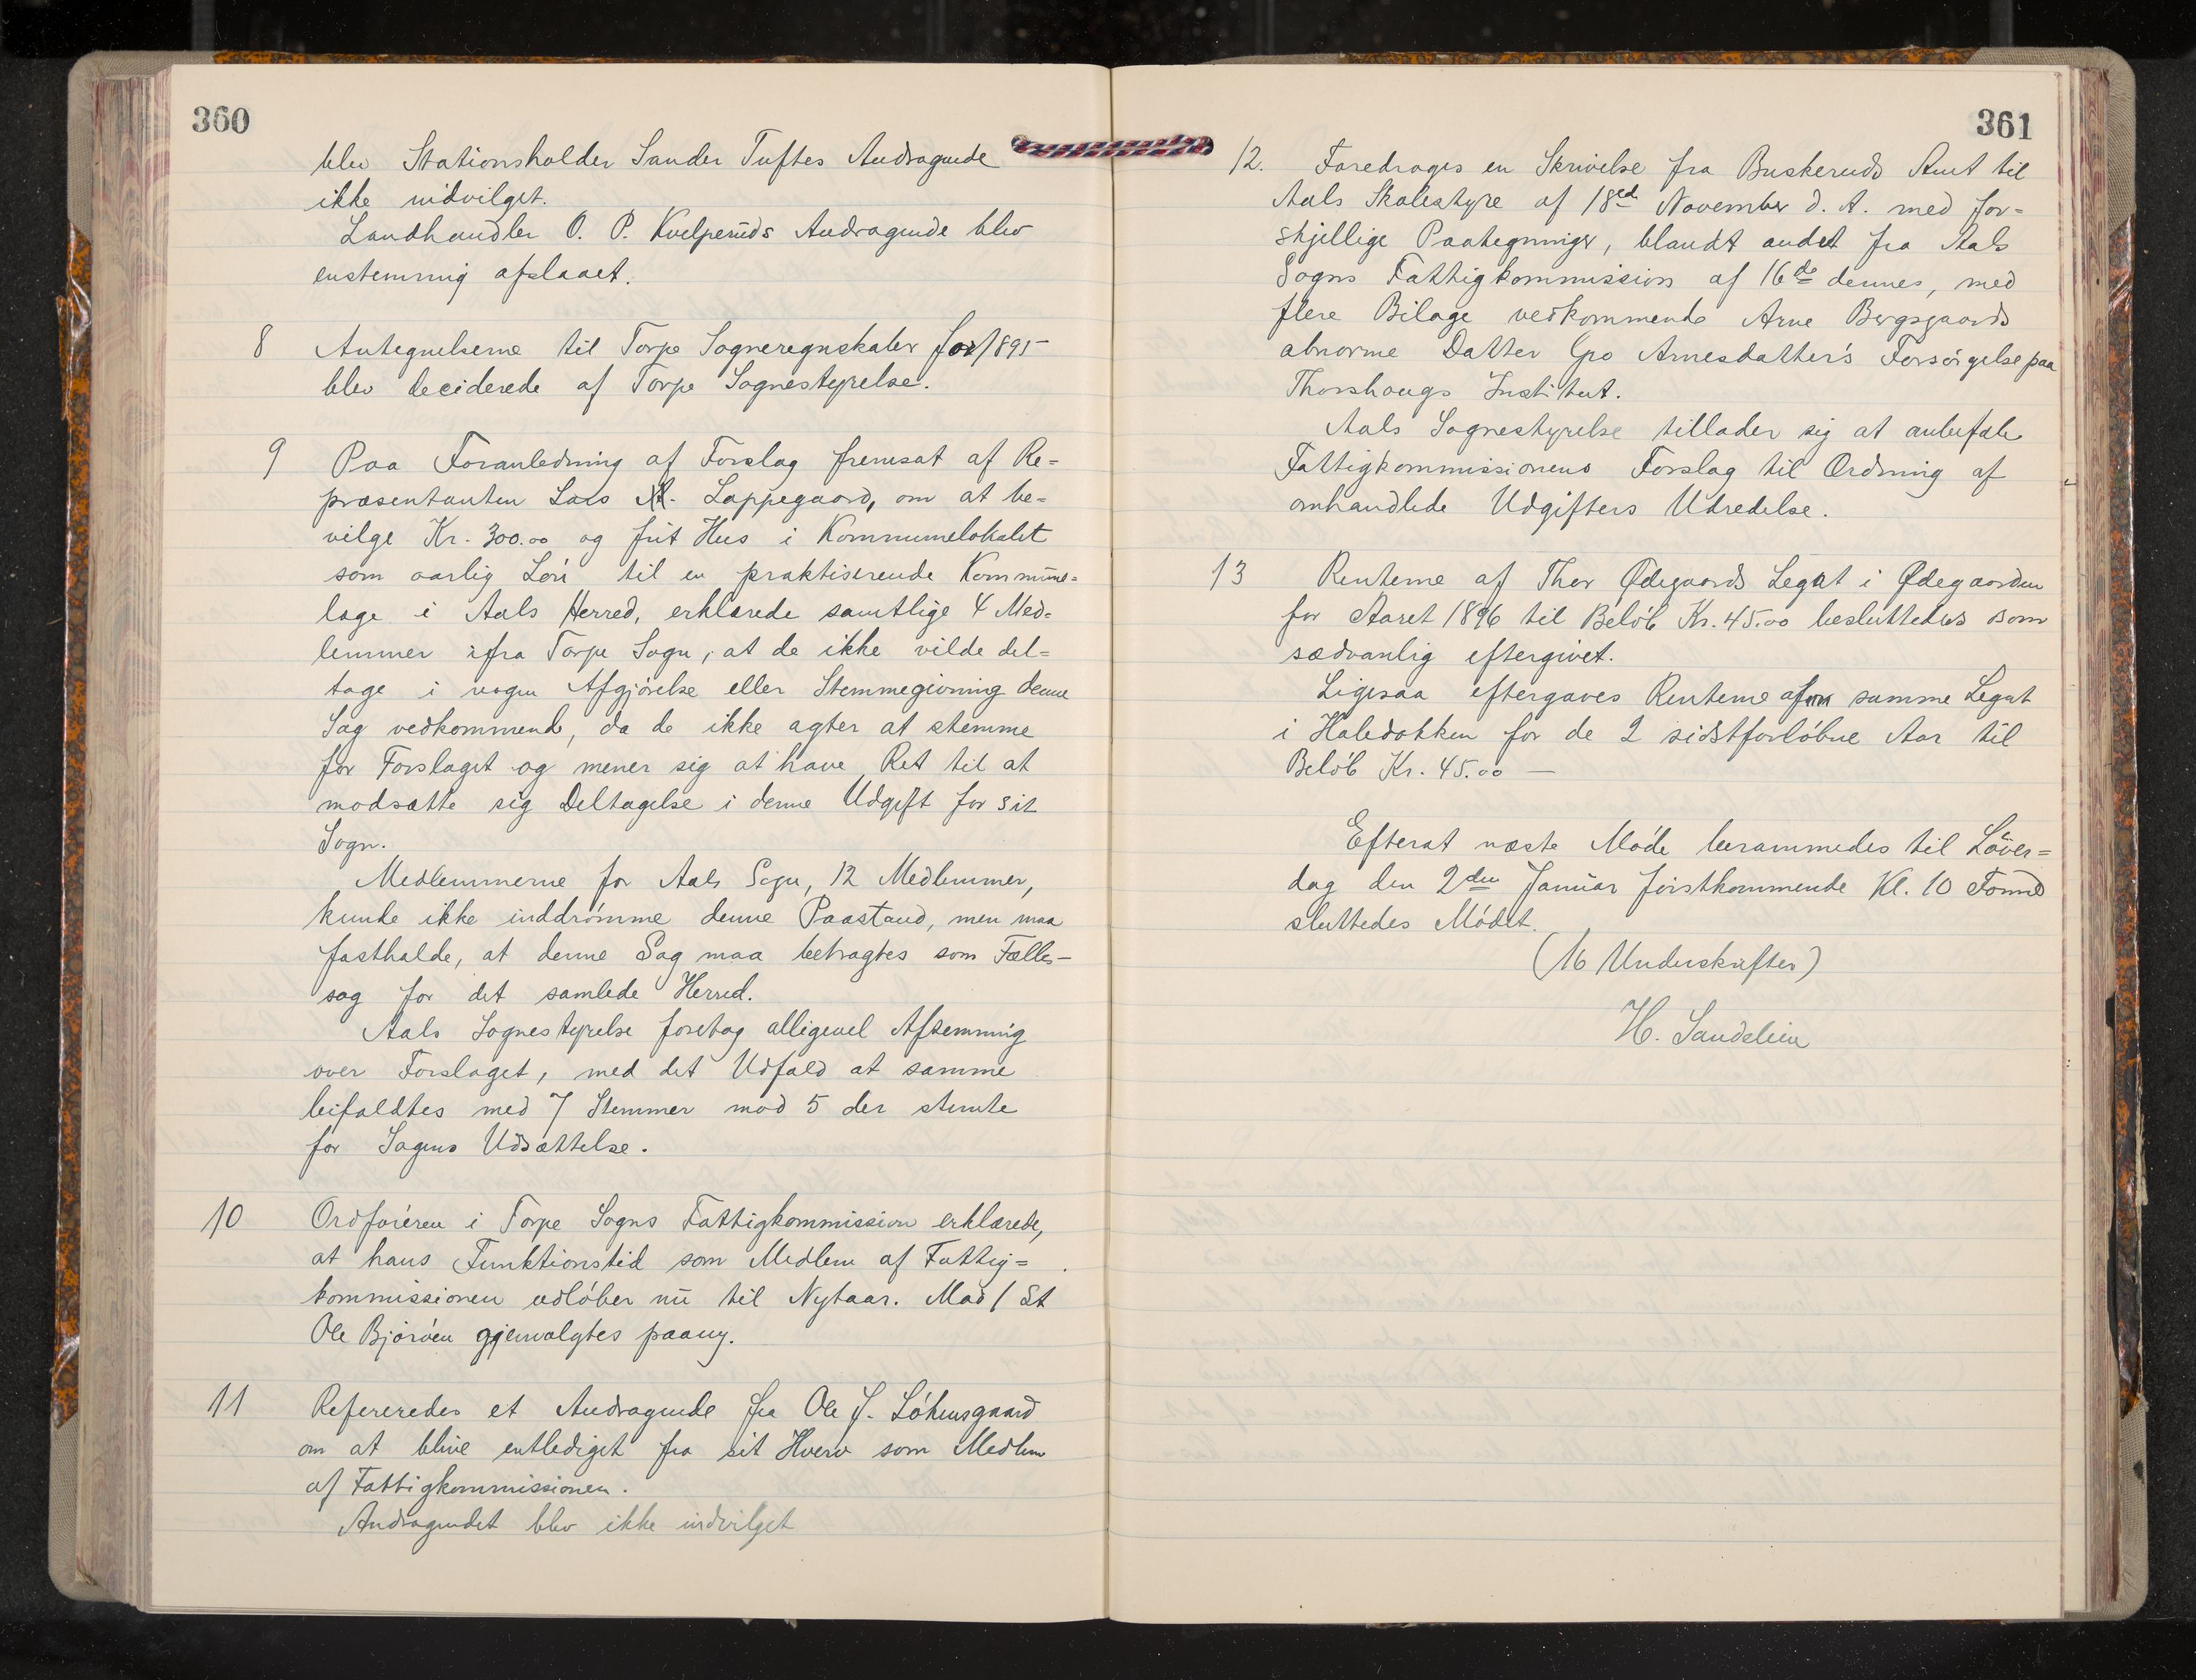 360
blev Stationsholder Sander Tuftes Andragende
ikke indvilget.
Landhandler O. P. Kvelperuds Andragende blev
enstemmig afslaaet.
8 Antegnelserne til Torpe Sogneregnskaber for 1895
blev deciderede af Torpe Sognestyrelse.
9 Paa Foranledning af Forslag fremsat af Re=
præsentanten Lars Lappegaard, om at be=
vilge Kr. 300.00 og frit Hus i Kommunelokalet
som aarlig Løn til en praktiserende Kommune=
læge i Aals Herred, erklærede samtlige 4 Med=
lemmer ifra Torpe Sogn, at de ikke vilde del=
tage i nogen Afgjørelse eller Stemmegivning denne
Sag vedkommende, da de ikke agter at stemme
for Forslaget og mener sig at have Ret til at
modsætte sig Deltagelse i denne Udgift for sit
Sogn.
Medlemmerne for Aals Sogn, 12 Medlemmer,
kunde ikke inddrømme denne Paastand, men maa
fastholde, at denne Sag maa betragtes som Fælles-
sag for det samlede Herred.
Aals Sognestyrelse foretog alligevel Afstemning
over Forslaget, med det Udfald at samme
bifaldtes med 7 Stemmer mod 5 der stemte
for Sagens Udsættelse.
10 Ordføreren i Torpe Sogns Fattigkommission erklærede,
at hans Funktionstid som Medlem af Fattig=
kommissionen udløber nu til Nytaar. Mod 1 St
Ole Bjørøen gjenvalgtes paany.
11 Refereredes et Andragende fra Ole J. Løkensgaard
om at blive entlediget fra sit Hverv som Medlem
af Fattigkommissionen.
Andragendet blev ikke indvilget
361
12. Foredroges en Skrivelse fra Buskeruds Amt til
Aals Skolestyre af 18de November d. A. med for=
skjellige Paategninger, blandt andet fra Aals
Sogns Fattigkommission af 16de dennes, med
flere Bilage vedkommende Arne Bergsgaards
abnorme Datter Gro Arnesdatter's Forsørgelse paa
Thorshougs Institut.
Aals Sognestyrelse tillader sig at anbefale
Fattigkommissionens Forslag til Ordning af
omhandlede Udgifters Udredelse.
13 Renterne af Thor Ødegaards Legat i Ødegaarden
for Aaret 1896 til Beløb Kr. 45.00 besluttedes som
sædvanlig eftergivet.
Ligesaa eftergaves Renterne af samme Legat
i Haledokken for de 2 sidstforløbne Aar til
Beløb Kr. 45.00 —
Efterat næste Møde berammedes til Løver=
dag den 2den Januar førstkommende Kl. 10 Formd
sluttedes Mødet.
(16 Underskrifter)
H. Sandelien